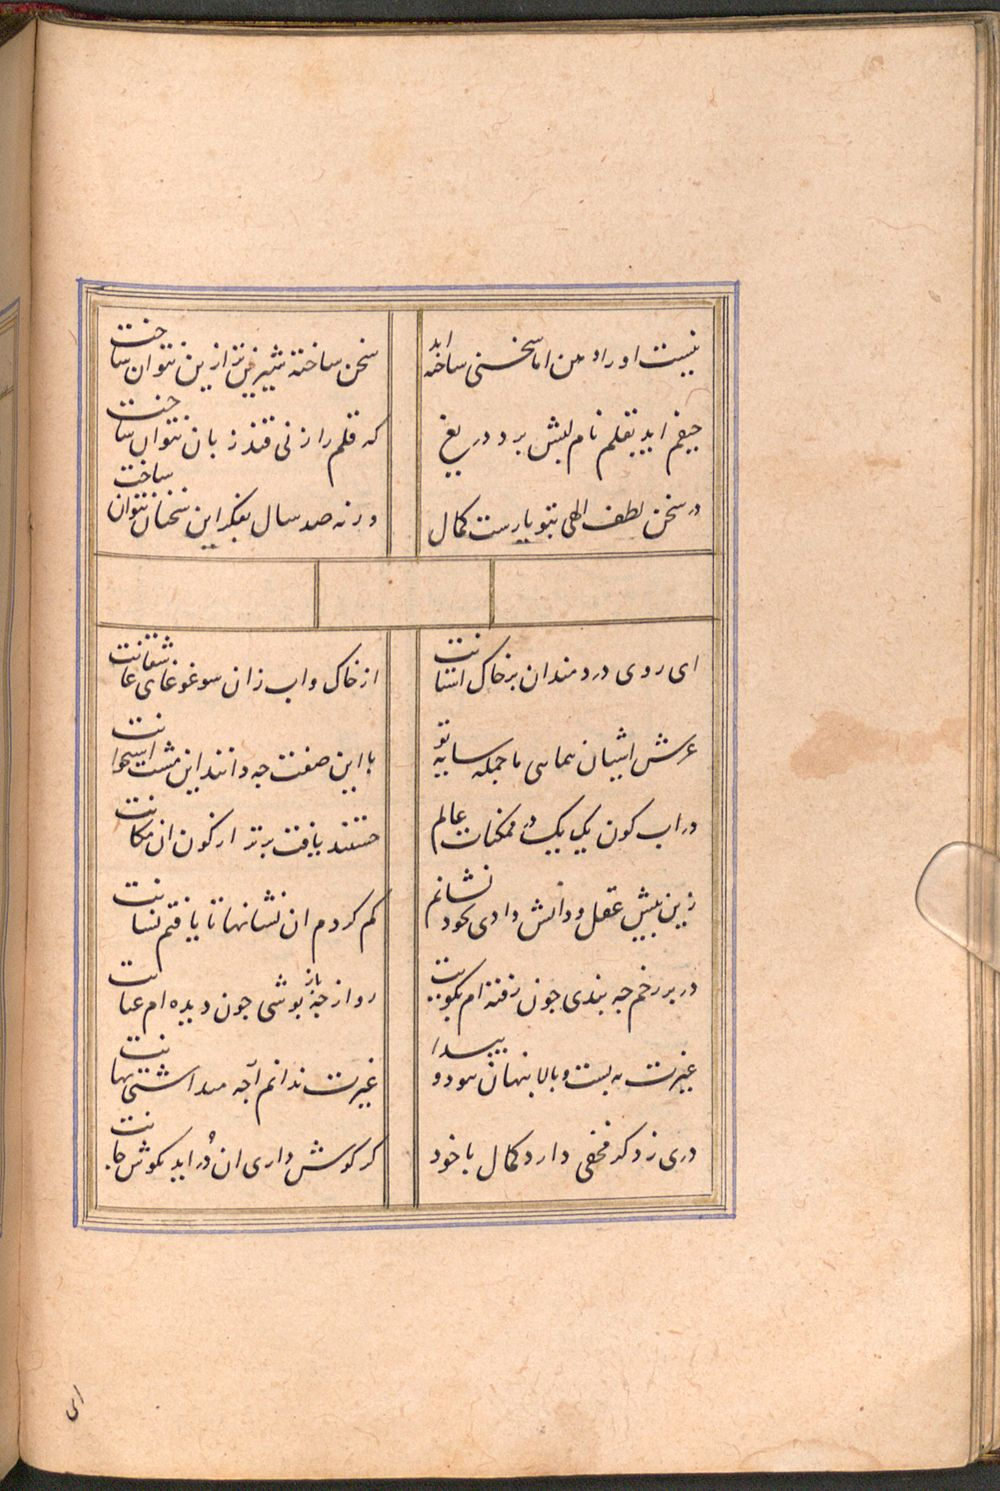 نیست او را دهن اما سخنی ساخته اند
سخن ساخته شیرین تر ازین نتوان ساخت
حیفم اید بقلم نام لبش برد دریغ
که قلم را ز نی قند زبان نتوان ساخت
در سخن لطف الهی بتو یارست کمال
ورنه صد سال بفکر این سخنان نتوان ساخت
ای روی دردمندان بر خاک استانت
از خاک و اب زان سو غوغای عاشقانت
عرش اشیان همای ما جمله سایه تو
با این صفت چه دانند این مشت استخوانت
در اب کون یک یک در ممکنات عالم
جستند یافت برتر از کون ان مکانت
زین بیش عقل و دانش دادی بخود نشانم
کم کردم ان نشانها تا یافتم نشانت
در بر رخم چه بندی چون رفته ام بکویت
رو از چه باز پوشی چون دیده ام عیانت
غیرت به پست و بالا پنهان نمود و پیدا
غیرت ندانم آنچه میداشتی نهانت
دری ز ذکر مخفی دارد کمال با خود
کر کوش داری ان در اید بکوش جانت
ای